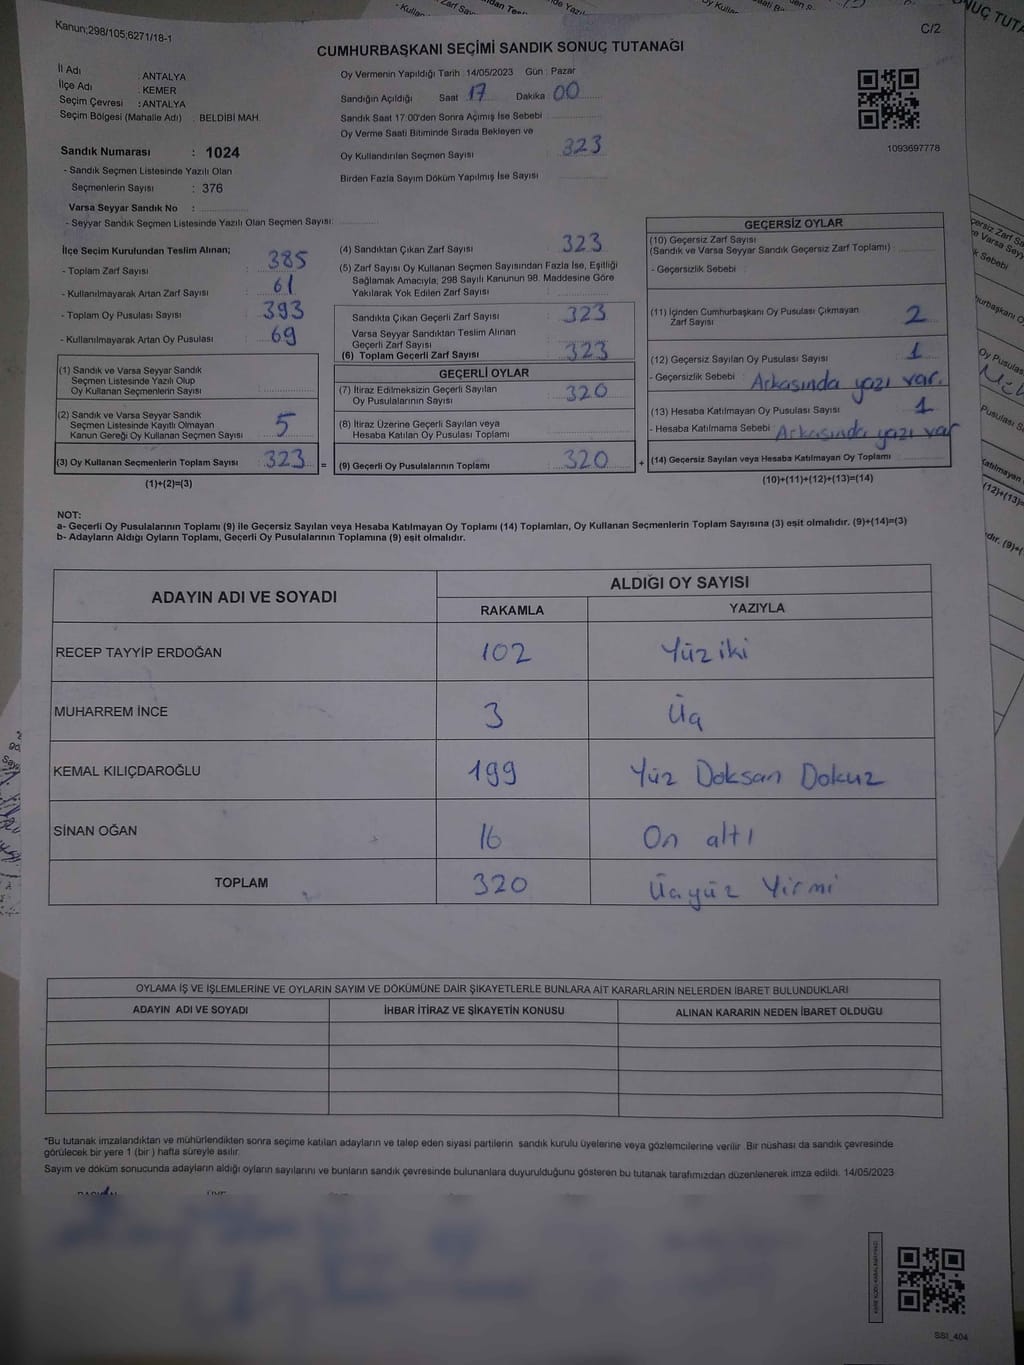 Kanun;298/105;6271/18-1
C/2
CUMHURBAŞKANI SEÇİMİ SANDIK SONUÇ TUTANAĞI
İl Adı : ANTALYA
İlçe Adı : KEMER
Seçim Çevresi : ANTALYA
Seçim Bölgesi (Mahalle Adı) : BELDİBİ MAH.
Oy Vermenin Yapıldığı Tarih : 14/05/2023 Gün : Pazar
Sandığın Açıldığı Saat 17 Dakika 00
Sandık Saat 17:00'den Sonra Açımış İse Sebebi
Oy Verme Saati Bitiminde Sırada Bekleyen ve
Oy Kullandırılan Seçmen Sayısı : 323
Birden Fazla Sayım Döküm Yapılmış İse Sayısı
1093697778
Sandık Numarası : 1024
- Sandık Seçmen Listesinde Yazılı Olan
Seçmenlerin Sayısı : 376
Varsa Seyyar Sandık No :
- Seyyar Sandık Seçmen Listesinde Yazılı Olan Seçmen Sayısı:
İlçe Seçim Kurulundan Teslim Alınan;
- Toplam Zarf Sayısı : 385
- Kullanılmayarak Artan Zarf Sayısı : 61
- Toplam Oy Pusulası Sayısı : 393
- Kullanılmayarak Artan Oy Pusulası : 69
(1) Sandık ve Varsa Seyyar Sandık
Seçmen Listesinde Yazılı Olup
Oy Kullanan Seçmenlerin Sayısı :
(2) Sandık ve Varsa Seyyar Sandık
Seçmen Listesinde Kayıtlı Olmayan
Kanun Gereği Oy Kullanan Seçmen Sayısı : 5
(3) Oy Kullanan Seçmenlerin Toplam Sayısı : 323 =
(1)+(2)=(3)
(4) Sandıktan Çıkan Zarf Sayısı : 323
(5) Zarf Sayısı Oy Kullanan Seçmen Sayısından Fazla İse, Eşitliği
Sağlamak Amacıyla; 298 Sayılı Kanunun 98. Maddesine Göre
Yakılarak Yok Edilen Zarf Sayısı :
Sandıkta Çıkan Geçerli Zarf Sayısı : 323
Varsa Seyyar Sandıktan Teslim Alınan
Geçerli Zarf Sayısı :
(6) Toplam Geçerli Zarf Sayısı : 323
GEÇERLİ OYLAR
(7) İtiraz Edilmeksizin Geçerli Sayılan
Oy Pusulalarının Sayısı : 320
(8) İtiraz Üzerine Geçerli Sayılan veya
Hesaba Katılan Oy Pusulası Toplamı :
(9) Geçerli Oy Pusulalarının Toplamı : 320 +
GEÇERSİZ OYLAR
(10) Geçersiz Zarf Sayısı
(Sandık ve Varsa Seyyar Sandık Geçersiz Zarf Toplamı) :
- Geçersizlik Sebebi :
(11) İçinden Cumhurbaşkanı Oy Pusulası Çıkmayan
Zarf Sayısı : 2
(12) Geçersiz Sayılan Oy Pusulası Sayısı : 1
- Geçersizlik Sebebi : Arkasında yazı var.
(13) Hesaba Katılmayan Oy Pusulası Sayısı : 1
- Hesaba Katılmama Sebebi : Arkasında yazı var
(14) Geçersiz Sayılan veya Hesaba Katılmayan Oy Toplamı :
(10)+(11)+(12)+(13)=(14)
NOT:
a- Geçerli Oy Pusulalarının Toplamı (9) ile Geçersiz Sayılan veya Hesaba Katılmayan Oy Toplamı (14) Toplamları, Oy Kullanan Seçmenlerin Toplam Sayısına (3) eşit olmalıdır. (9)+(14)=(3)
b- Adayların Aldığı Oyların Toplamı, Geçerli Oy Pusulalarının Toplamına (9) eşit olmalıdır.
ADAYIN ADI VE SOYADI
ALDIĞI OY SAYISI
RAKAMLA YAZIYLA
RECEP TAYYİP ERDOĞAN 102 Yüz iki
MUHARREM İNCE 3 Üç
KEMAL KILIÇDAROĞLU 199 Yüz Doksan Dokuz
SİNAN OĞAN 16 On altı
TOPLAM 320 Üçyüz Yirmi
OYLAMA İŞ VE İŞLEMLERİNE VE OYLARIN SAYIM VE DÖKÜMÜNE DAİR ŞİKAYETLERLE BUNLARA AİT KARARLARIN NELERDEN İBARET BULUNDUKLARI
ADAYIN ADI VE SOYADI İHBAR İTİRAZ VE ŞİKAYETİN KONUSU ALINAN KARARIN NEDEN İBARET OLDUĞU
*Bu tutanak imzalandıktan ve mühürlendikten sonra seçime katılan adayların ve talep eden siyasi partilerin sandık kurulu üyelerine veya gözlemcilerine verilir. Bir nüshası da sandık çevresinde
görülecek bir yere 1 (bir ) hafta süreyle asılır.
Sayım ve döküm sonucunda adayların aldığı oyların sayılarını ve bunların sandık çevresinde bulunanlara duyurulduğunu gösteren bu tutanak tarafımızdan düzenlenerek imza edildi. 14/05/2023
SSI_404